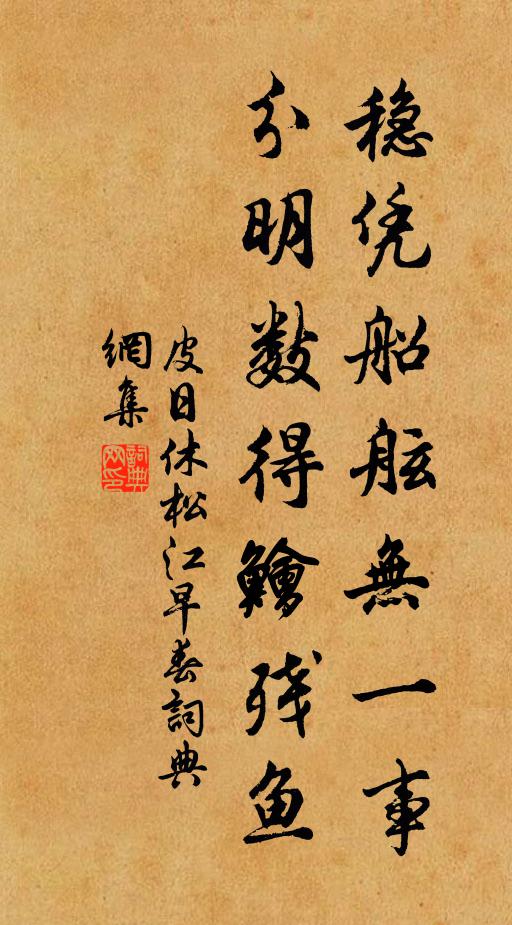 稳凭船舷無一事
分明数得鱠残鱼
皮日休松江早春詞典
網集
詞典
网印